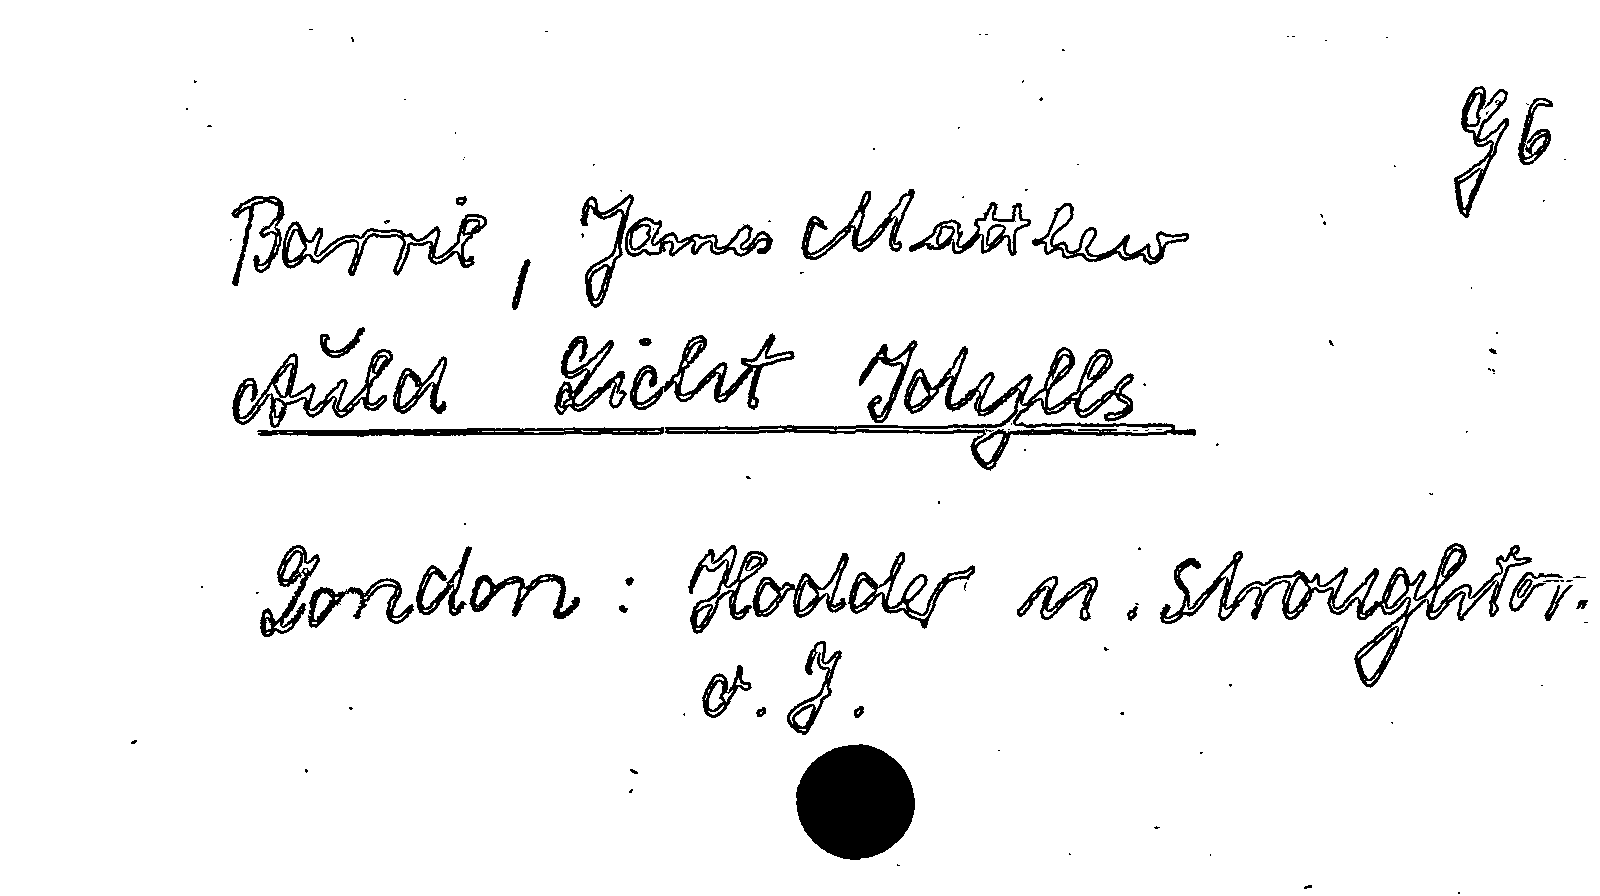 G 6
Barrie, James Matthew
Auld Licht Idylls
London : Hodder u. Stroughton.
o. J.